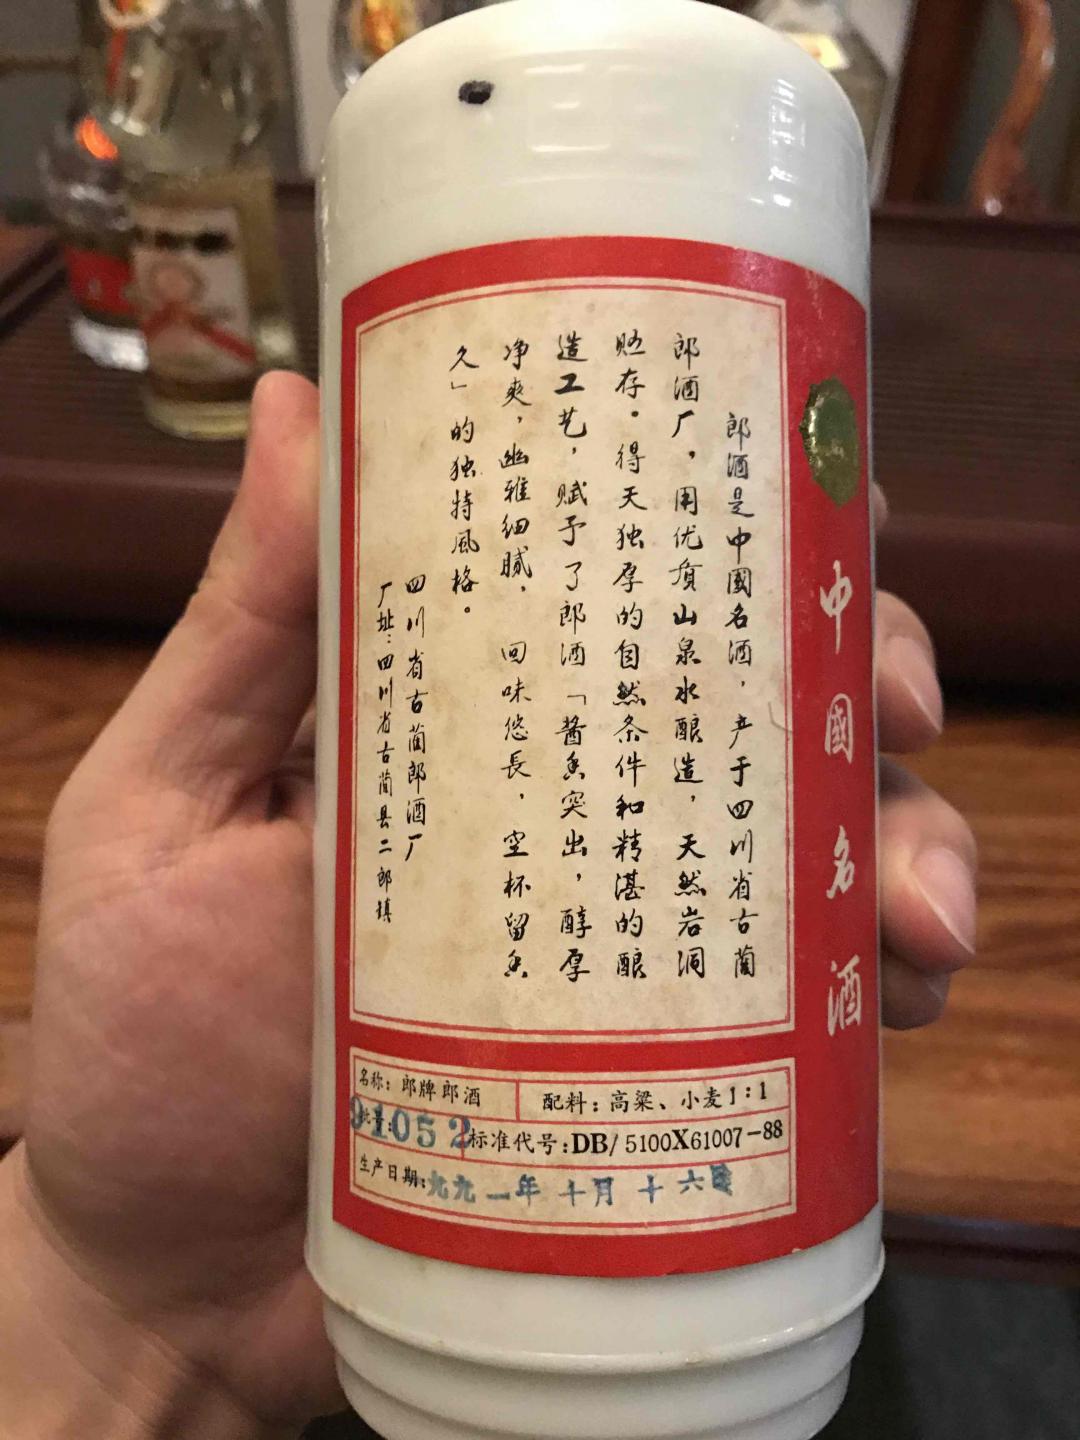 中國名酒
郎酒是中國名酒，产于四川省古蔺
郎酒厂，用优质山泉水酿造，天然岩洞
贮存。得天独厚的自然条件和精湛的酿
造工艺，赋予了郎酒「酱香突出，醇厚
净爽，幽雅细腻，回味悠長，空杯留香
久」的独特風格。
四川省古蔺郎酒厂
厂址：四川省古蔺县二郎镇
名称：郎牌郎酒
配料：高粱、小麦1：1
批号：91052
标准代号：DB/5100X61007-88
生产日期：九九一年十月十六日